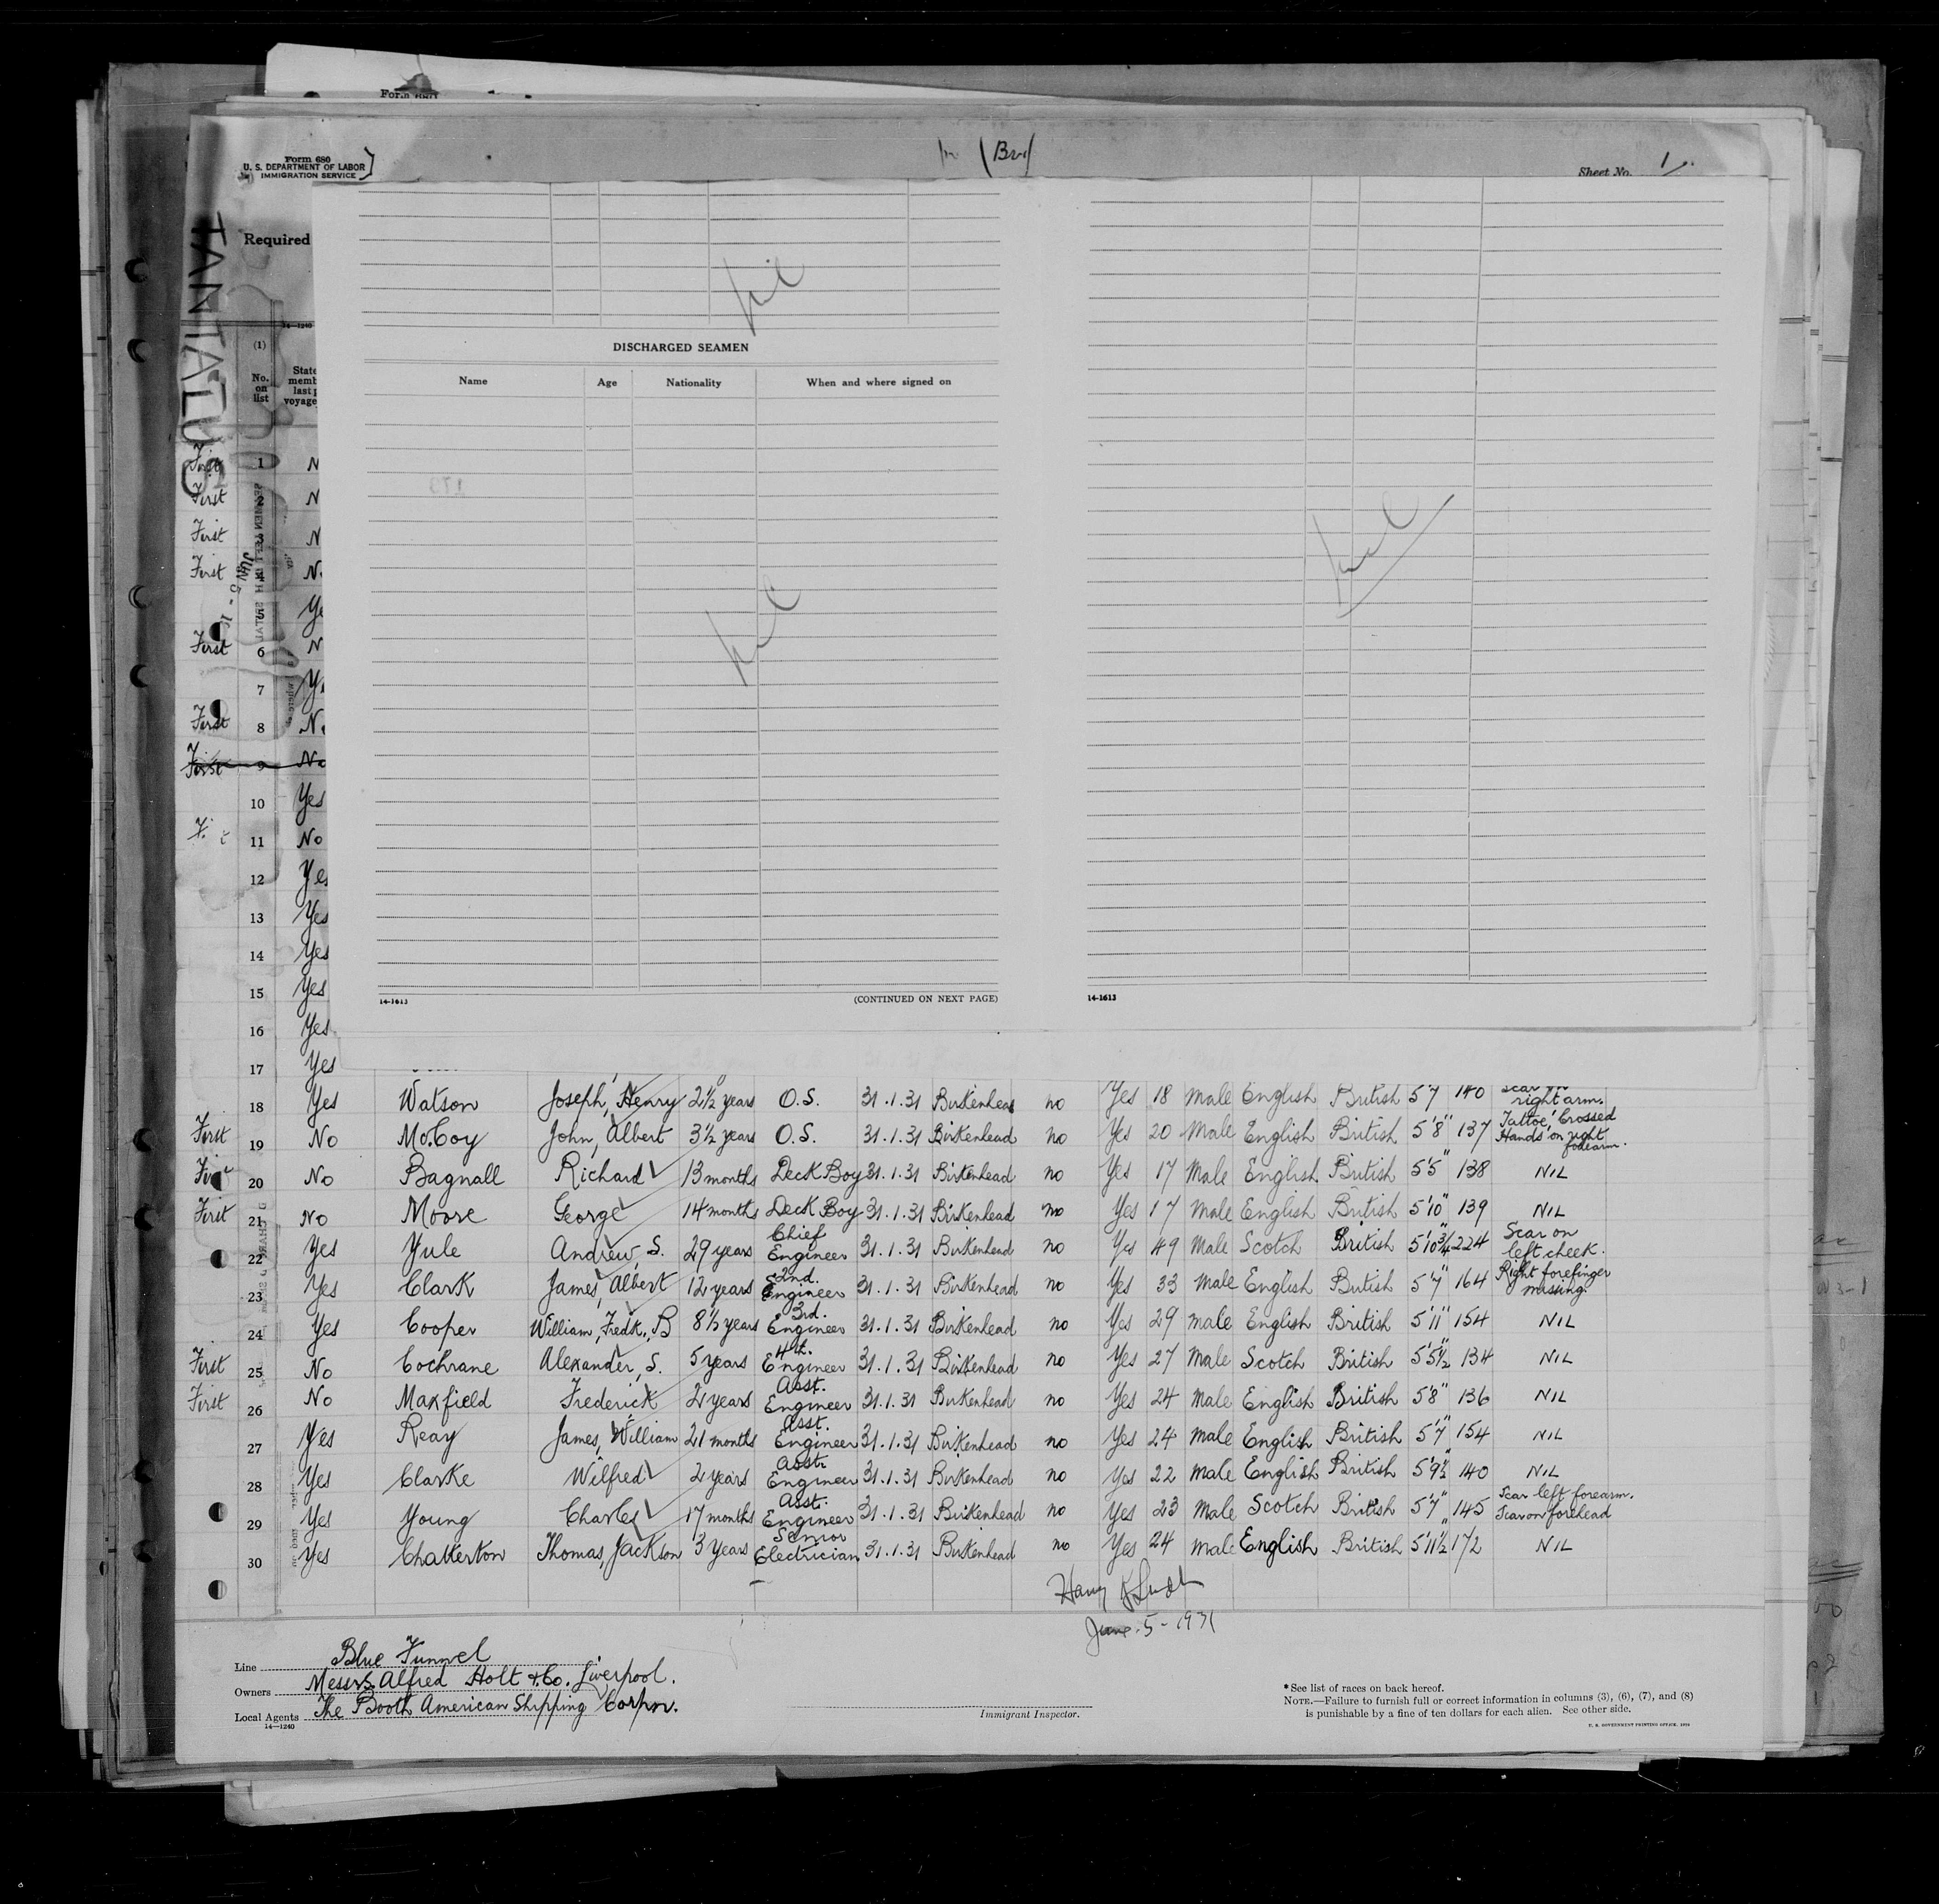 Form 680
U. S. DEPARTMENT OF LABOR
IMMIGRATION SERVICE
Sheet No. 1
Required
TANTALUS
14—1240
(1)
No. on list
DISCHARGED SEAMEN
Name Age Nationality When and where signed on
nil
nil
nil
14-1613 (CONTINUED ON NEXT PAGE) 14-1613
First 1 N
First 2 N
First 3 N
First 4 No
5 Ye
First 6 N
7 Ye
First 8 No
First 9 No
10 Yes
11 No
12 Yes
13 Yes
14 Yes
15 Yes
16 Yes
17 Yes
18 Yes Watson Joseph, Henry 2½ years O.S. 31.1.31 Birkenhead no Yes 18 Male English British 5'7 140 Scar on right arm.
First 19 No McCoy John, Albert 3½ years O.S. 31.1.31 Birkenhead no Yes 20 Male English British 5'8" 137 Tattoe, 'Crossed Hands' on right forearm.
20 No Bagnall Richard 13 months Deck Boy 31.1.31 Birkenhead no Yes 17 Male English British 5'5" 138 NIL
First 21 No Moore George 14 months Deck Boy 31.1.31 Birkenhead no Yes 17 Male English British 5'10" 139 NIL
22 Yes Yule Andrew, S. 29 years Chief Engineer 31.1.31 Birkenhead no Yes 49 Male Scotch British 5'10¾ 224 Scar on left cheek.
23 Yes Clark James, Albert 12 years 2nd. Engineer 31.1.31 Birkenhead no Yes 33 Male English British 5'7" 164 Right forefinger missing.
24 Yes Cooper William, Fredk., B 8½ years 3rd. Engineer 31.1.31 Birkenhead no Yes 29 Male English British 5'11" 154 NIL
First 25 No Cochrane Alexander, S. 5 years 4th. Engineer 31.1.31 Birkenhead no Yes 27 Male Scotch British 5'5½" 134 NIL
First 26 No Maxfield Frederick 2 years Asst. Engineer 31.1.31 Birkenhead no Yes 24 Male English British 5'8" 136 NIL
27 Yes Reay James, William 21 months Asst. Engineer 31.1.31 Birkenhead no Yes 24 Male English British 5'7" 154 NIL
28 Yes Clarke Wilfred 2 years Asst. Engineer 31.1.31 Birkenhead no Yes 22 Male English British 5'9½" 140 NIL
29 Yes Young Charles 17 months Asst. Engineer 31.1.31 Birkenhead no Yes 23 Male Scotch British 5'7" 145 Scar left forearm. Scar on forehead
30 Yes Chatterton Thomas, Jackson 3 years Senior Electrician 31.1.31 Birkenhead no Yes 24 Male English British 5'11½" 172 NIL
Harry
June-5-1931
Line Blue Funnel
Owners Messrs. Alfred Holt & Co. Liverpool.
Local Agents The Booth American Shipping Corpn.
14—1240
Immigrant Inspector.
*See list of races on back hereof.
NOTE.—Failure to furnish full or correct information in columns (3), (6), (7), and (8)
is punishable by a fine of ten dollars for each alien. See other side.